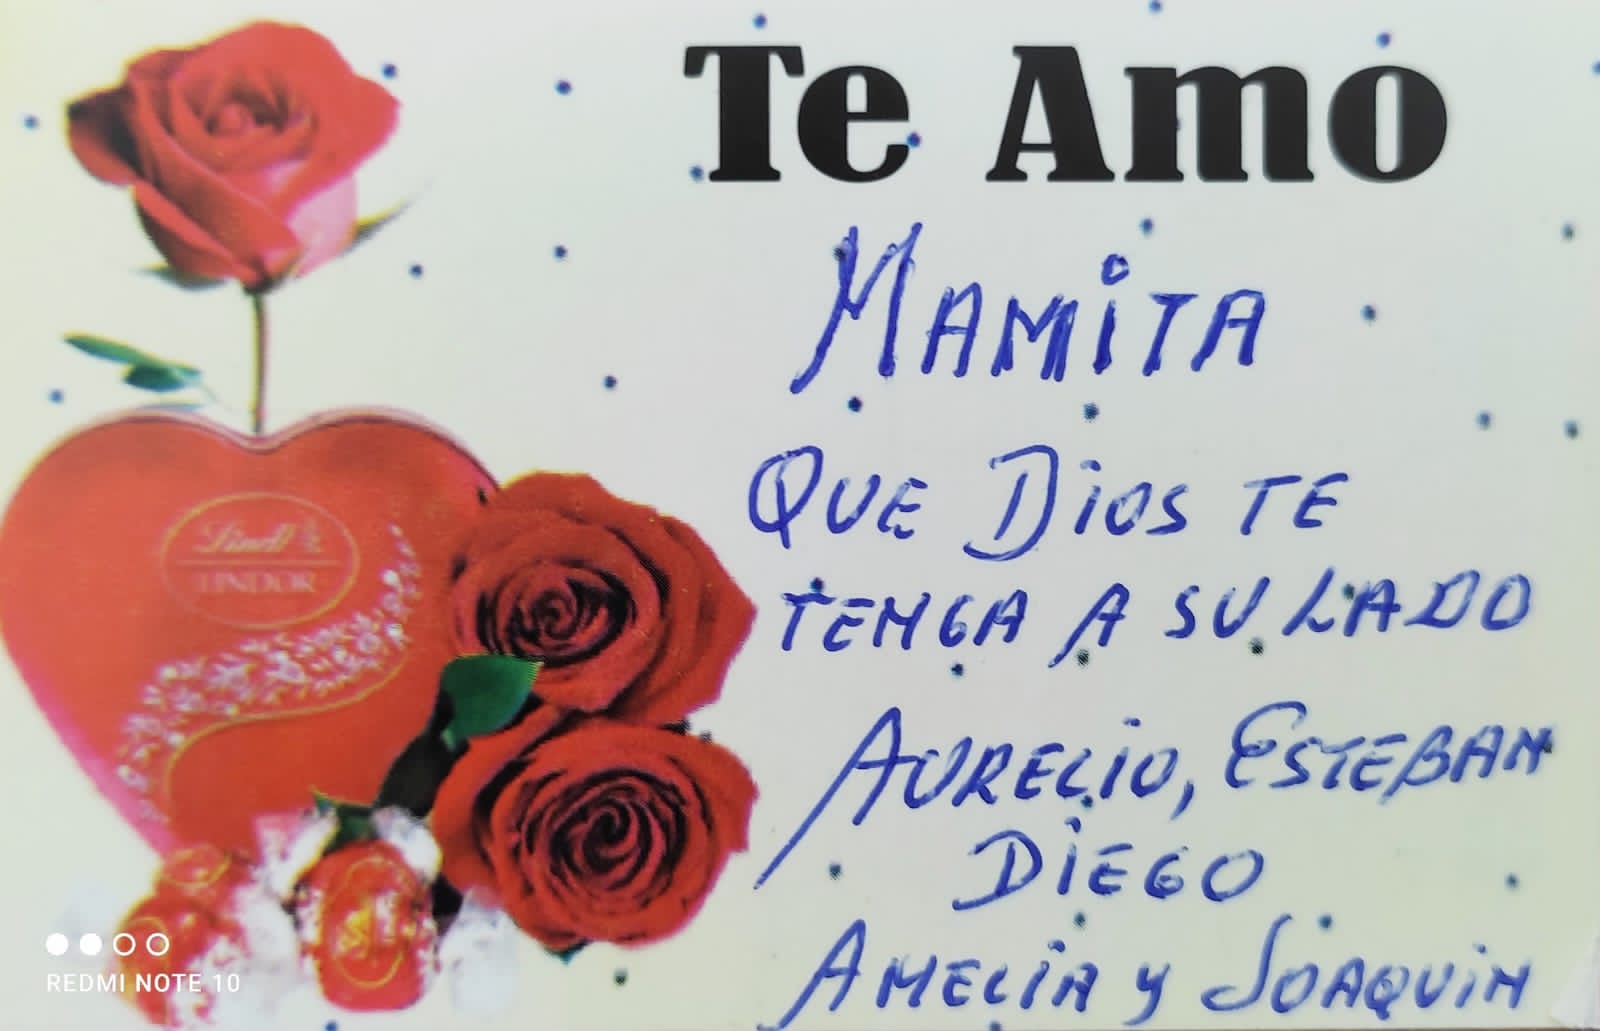 Te Amo
MAMiTA
QUE DiOS TE
TENGA A SU LADO
AURELiO, ESTEBAN
DiEGO
AMELiA y JOAQUiN
Lindt
LINDOR
REDMI NOTE 10